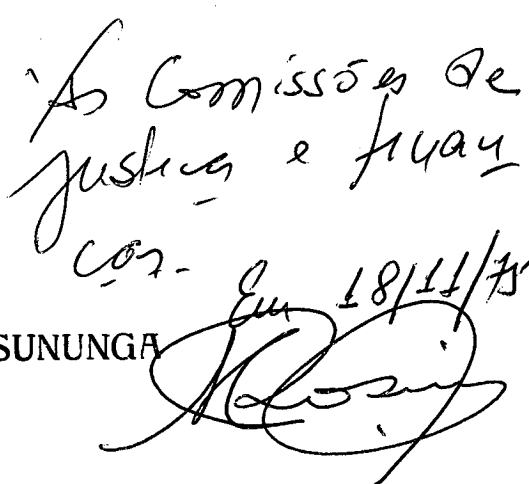 Às Comissões de
Justiça e finan
ças.
Em 18/11/75
SUNUNGA